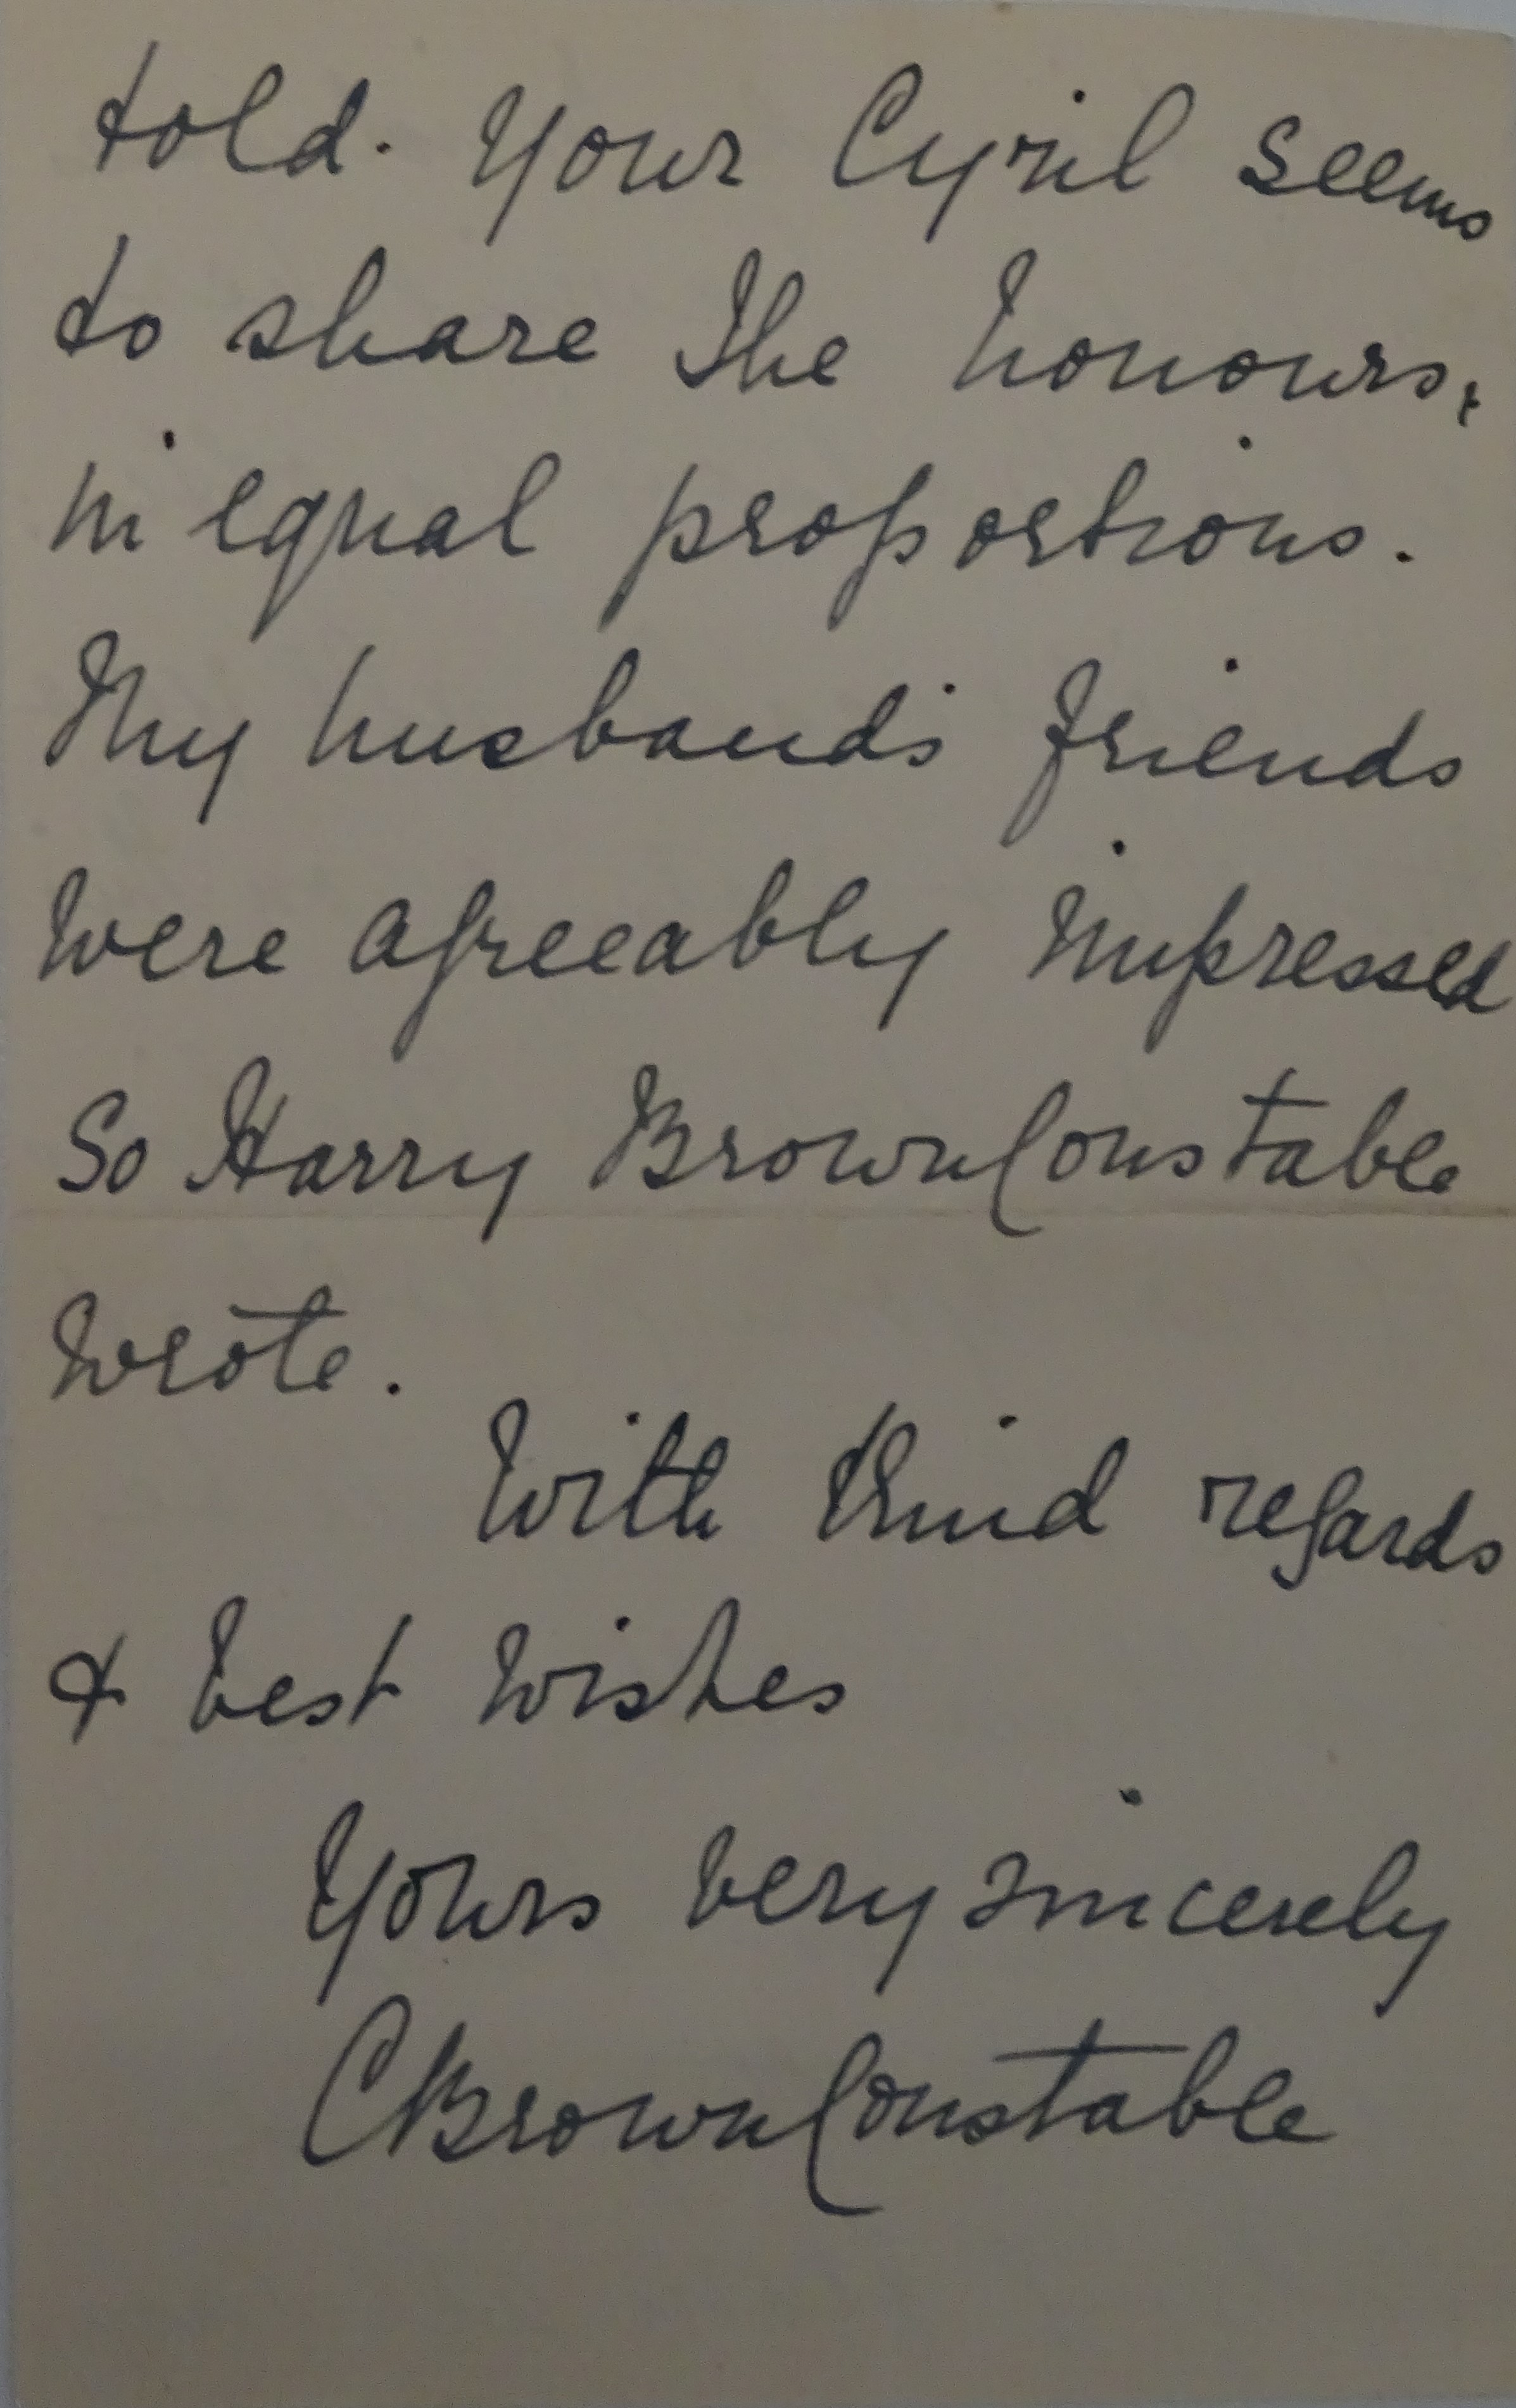 told. Your Cyril seems
to share the honours,
in equal proportions.
My husband's friends
were agreeably impressed
So Harry Brown Constable
wrote.
With kind regards
& best wishes
Yours very sincerely
CBrown Constable